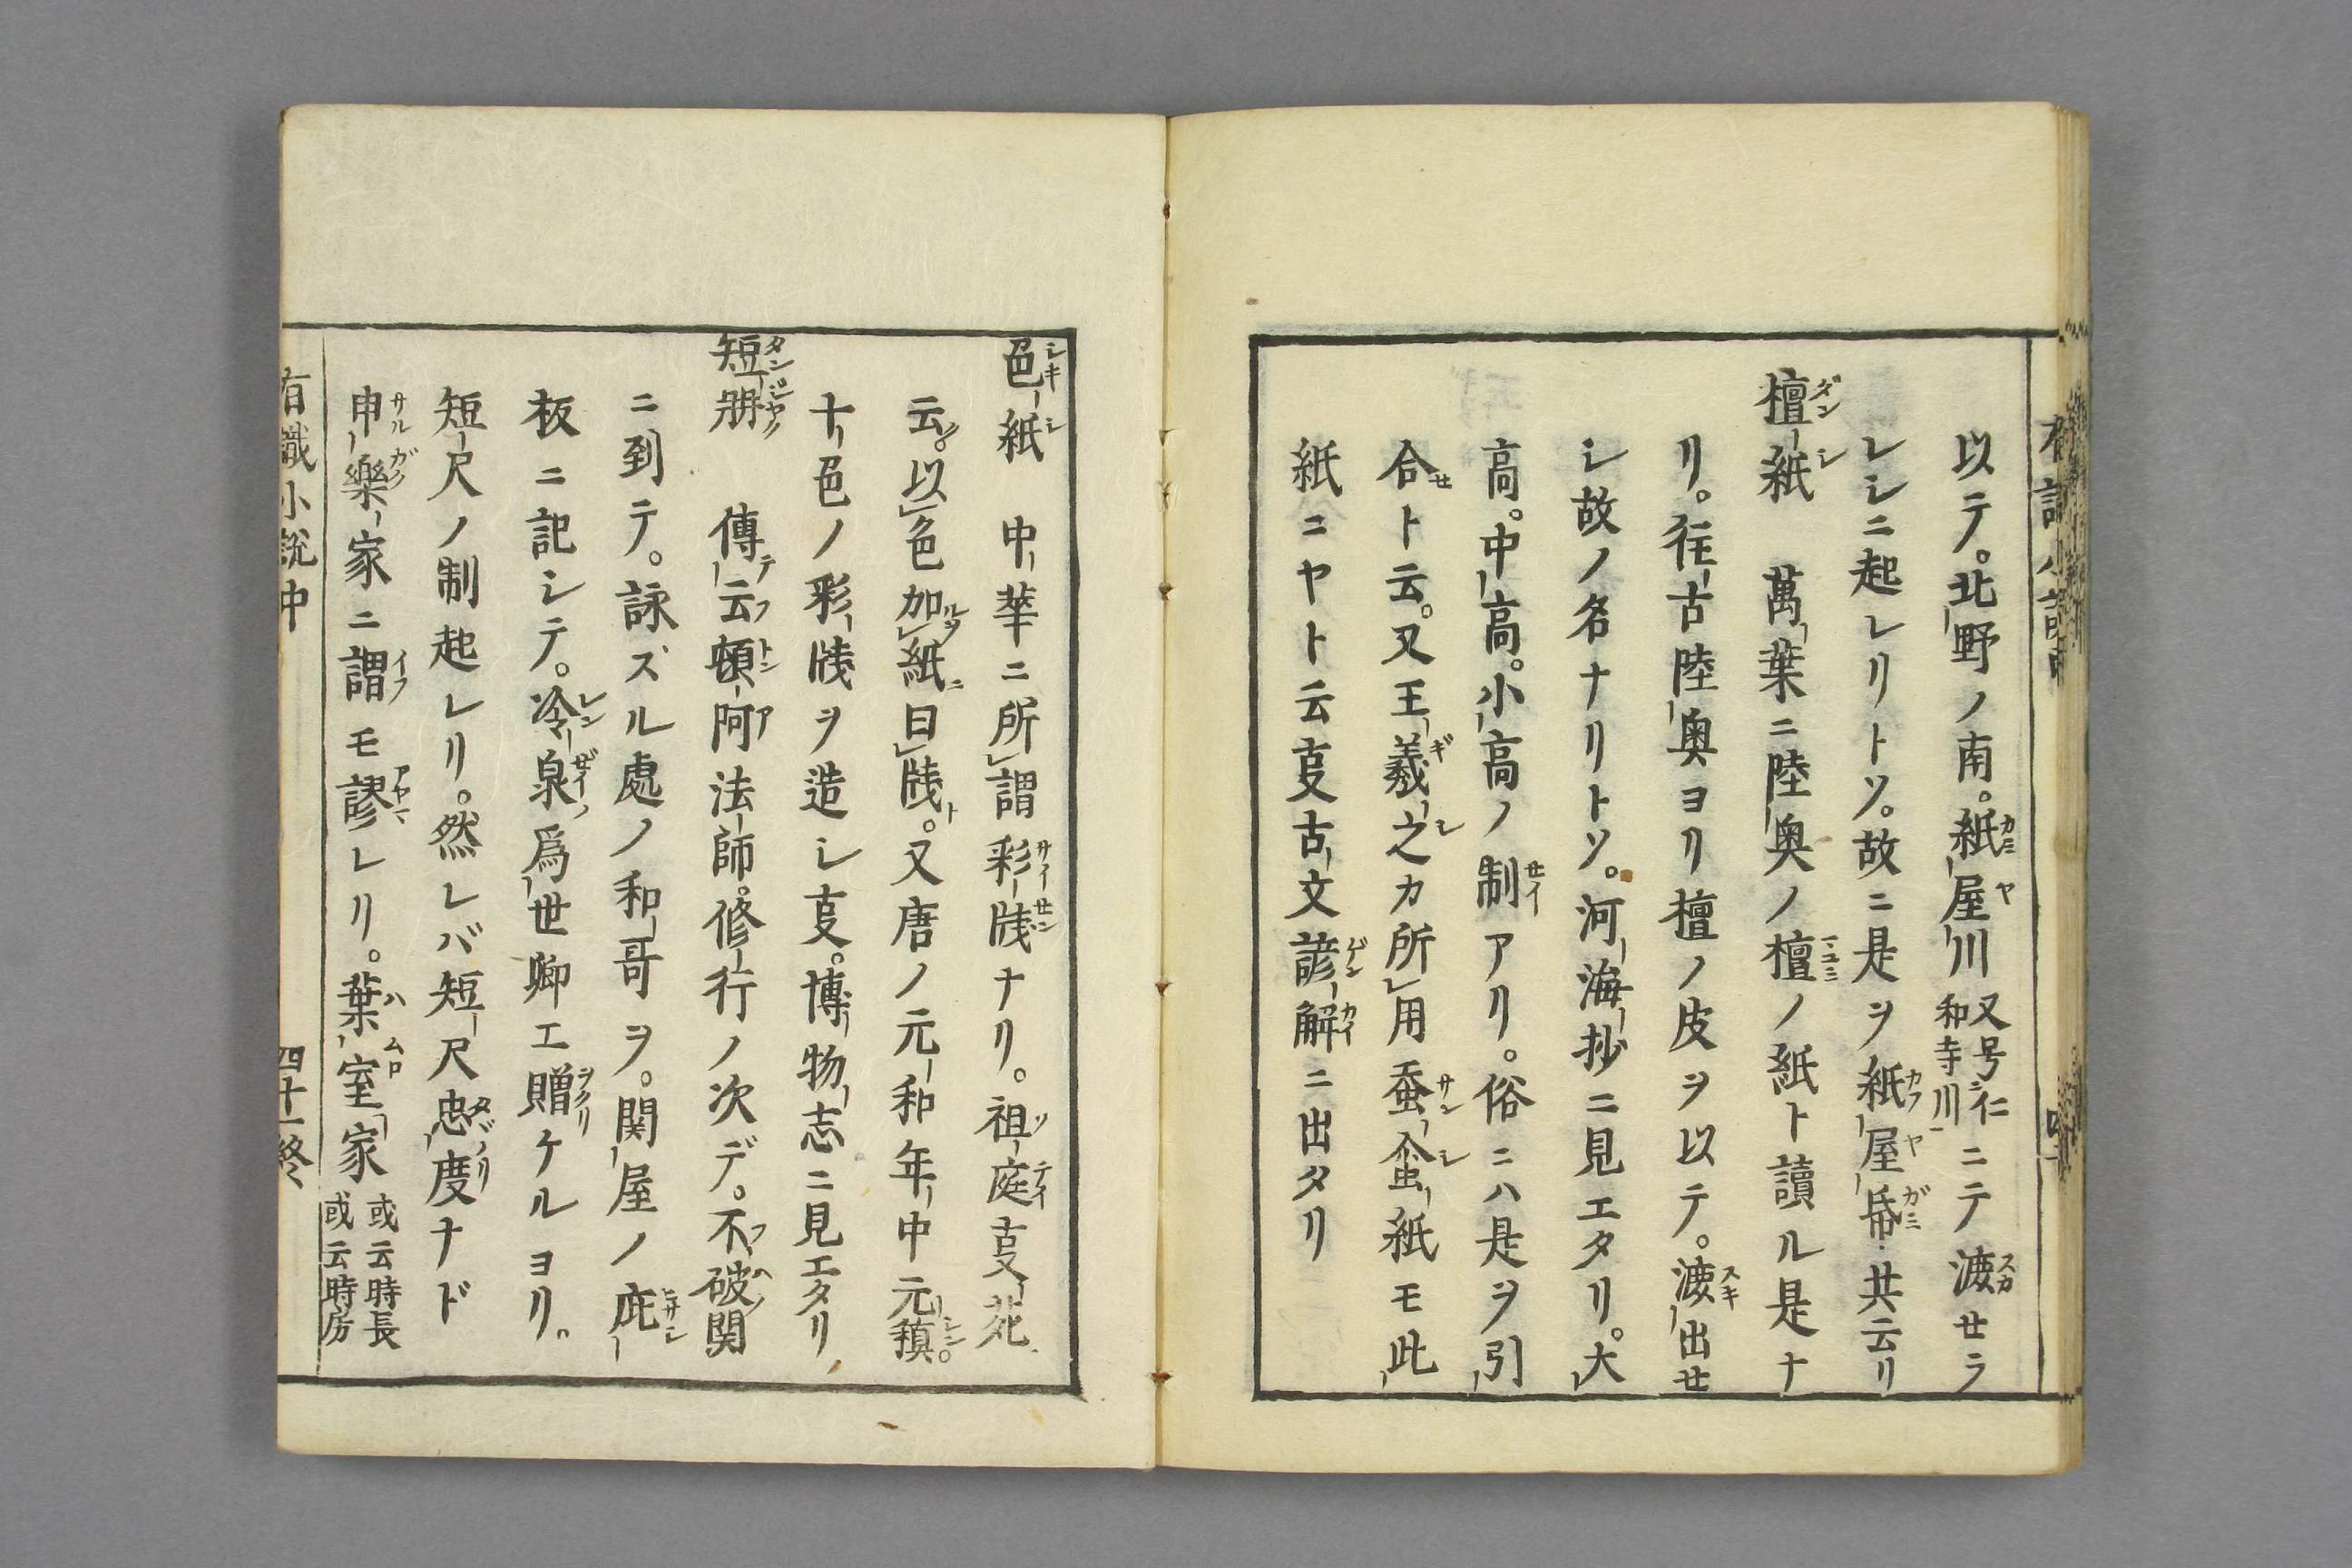 以テ。北野ノ南。紙屋川又号仁和寺川ニテ漉セラ
レシニ起レリトソ。故ニ是ヲ紙屋帋共云リ
檀紙 萬葉ニ陸奥ノ檀ノ紙ト讀ル是ナ
リ。往古陸奥ヨリ檀ノ皮ヲ以テ。漉出セ
シ故ノ名ナリトソ。河海抄ニ見エタリ。大
高。中高。小高ノ制アリ。俗ニハ是ヲ引
合ト云。又王羲之カ所用蚕𧉫紙モ此
紙ニヤト云叓古文諺解ニ出タリ
色紙 中華ニ所謂彩牋ナリ。祖庭叓苑
云。以色加紙曰牋。又唐ノ元和年中元稹。
十色ノ彩牋ヲ造シ叓。博物志ニ見エタリ
短冊 傳云頓阿法師。修行ノ次デ。不破関
ニ到テ。詠ズル處ノ和哥ヲ。関屋ノ庇
板ニ記シテ。冷泉爲世卿エ贈ケルヨリ。
短尺ノ制起レリ。然レバ短尺忠度ナド
申樂家ニ謂モ謬レリ。葉室家或云時長或云時房
有職小説中 四十一終